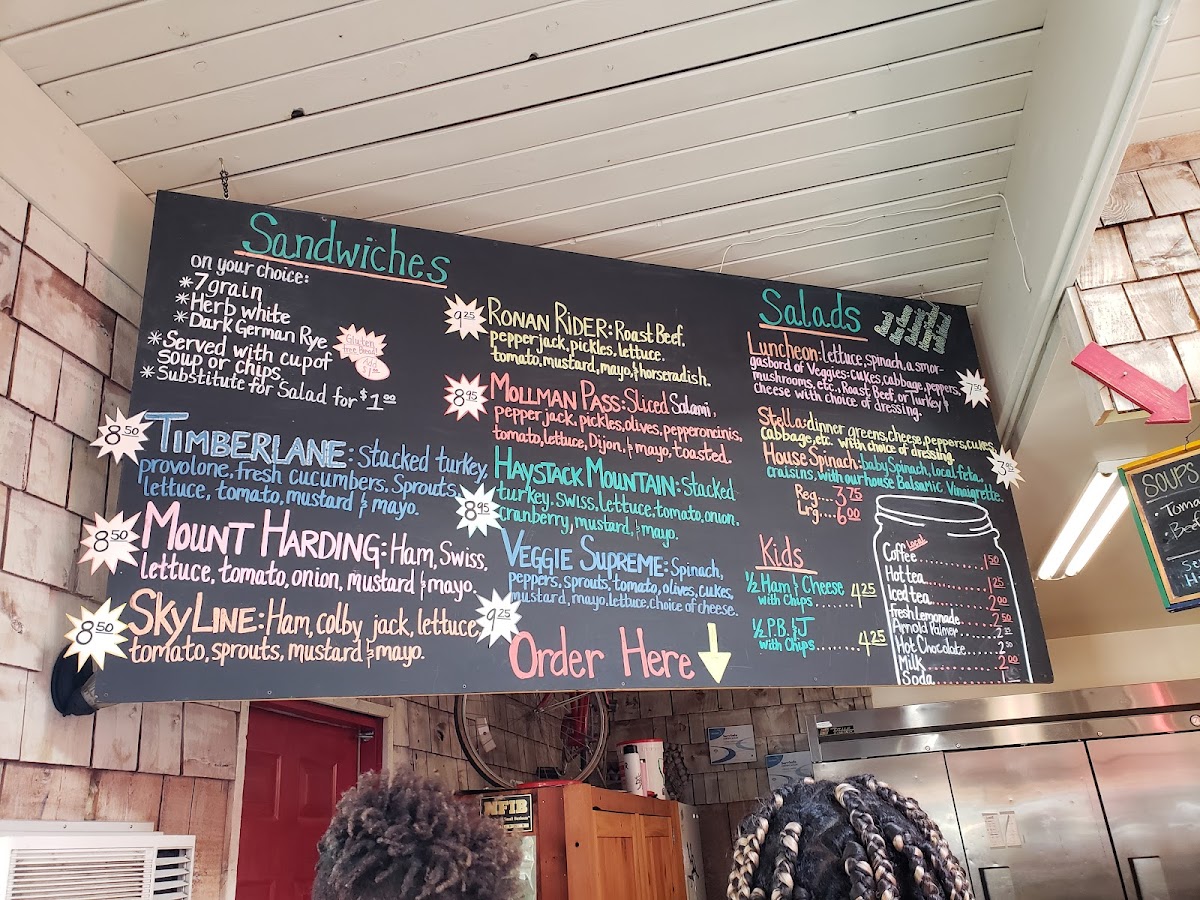 Sandwiches
on your choice:
* 7 grain
* Herb white
* Dark German Rye
* Served with cup of
soup or chips
* Substitute for Salad for $1.00
Gluten
free Bread!
Add
8.50
TIMBERLANE: Stacked turkey,
provolone, fresh cucumbers, Sprouts,
lettuce, tomato, mustard & mayo.
8.50
MOUNT HARDING: Ham, Swiss,
lettuce, tomato, onion, mustard & mayo.
8.50
SKYLINE: Ham, colby jack, lettuce,
tomato, sprouts, mustard & mayo.
9.25
RONAN RIDER: Roast Beef,
pepper jack, pickles, lettuce.
tomato, mustard, mayo, & horseradish.
8.95
MOLLMAN PASS: Sliced Salami,
pepper jack, pickles, olives, pepperoncinis,
tomato, lettuce, Dijon, & mayo, toasted.
8.95
HAYSTACK MOUNTAIN: Stacked
turkey, swiss, lettuce, tomato, onion.
cranberry, mustard, & mayo.
9.25
VEGGIE SUPREME: Spinach,
peppers, sprouts, tomato, olives, cukes,
mustard, mayo, lettuce, choice of cheese.
Order Here
Salads
Luncheon: Lettuce, spinach, a smor-
gasbord of Veggies: cukes, cabbage, peppers,
mushrooms, etc., Roast Beef, or Turkey &
Cheese with choice of dressing.
7.50
Stella: dinner greens, cheese, peppers, cukes,
Cabbage, etc. with choice of dressing.
3.95
House Spinach: baby Spinach, local feta,
craisins, with our house Balsamic Vinaigrette.
Reg....3.75
Lrg....6.00
Kids
1/2 Ham & Cheese
with Chips.......4.25
1/2 P.B. & J
with Chips.......4.25
Local
Coffee.......1.50
Hot tea.......1.25
Iced tea.......2.00
fresh Lemonade.......2.50
Arnold Palmer
Hot Chocolate.....2.50
Milk.......2.00
Soda
SOUPS
NFIB